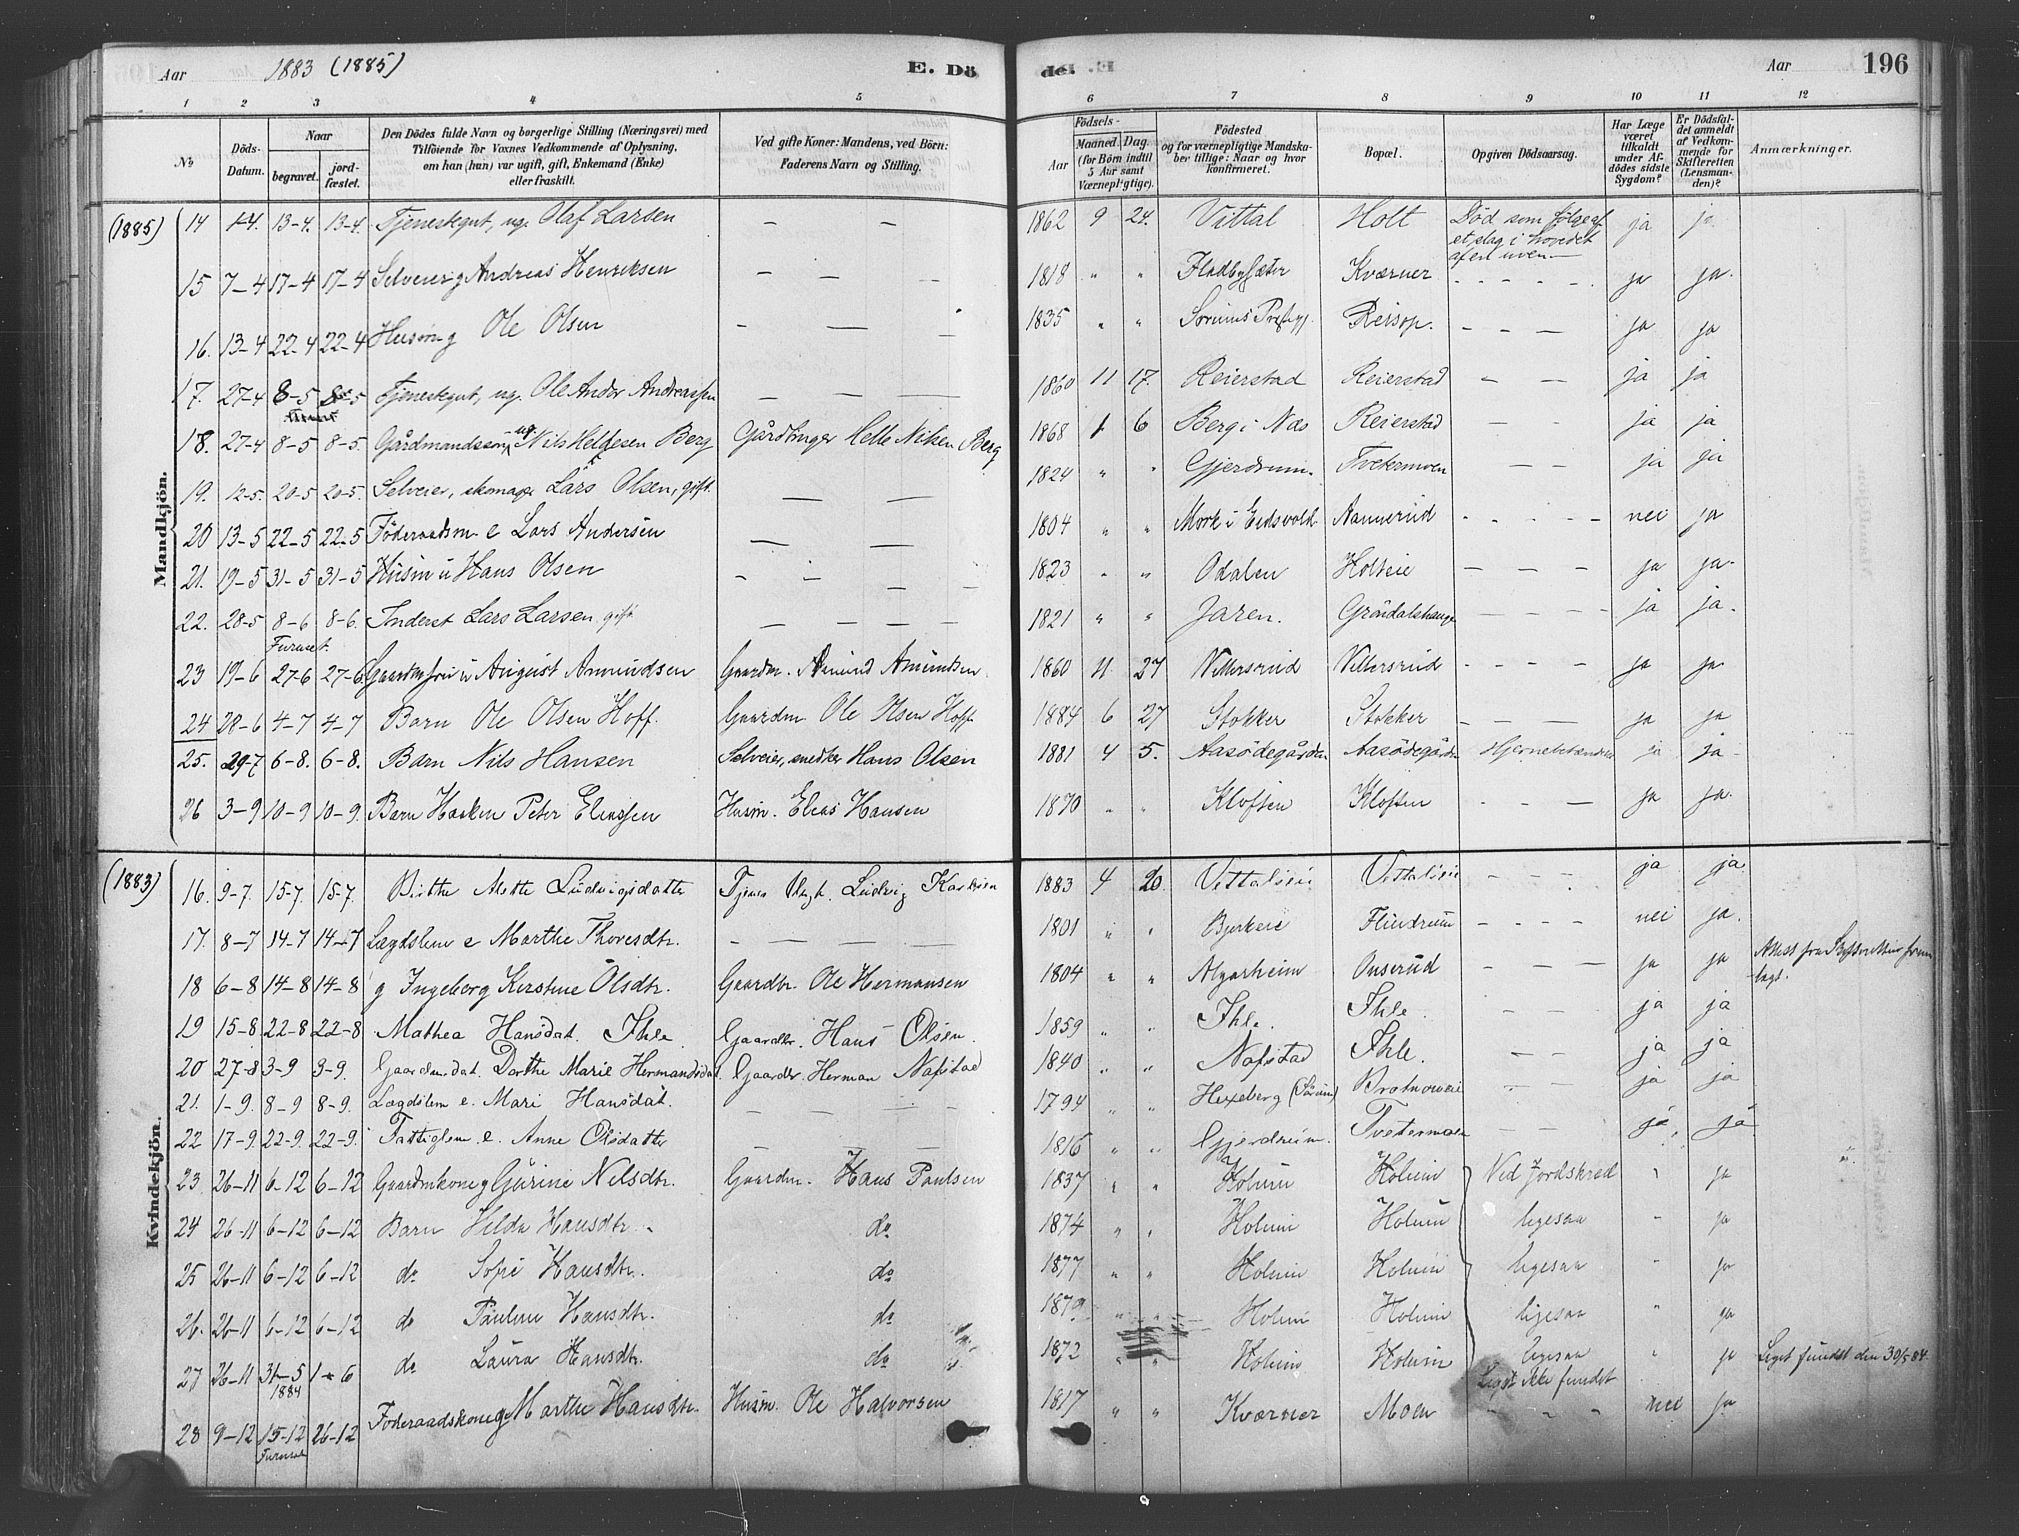 Aar 1883 (1885) E. Dö
de. Aar 196
1 2 3 4 5 6 7 8 9 10 11 12
No Döds-Datum. Naar begravet. jord-fæstet. Den Dödes fulde Navn og borgerlige Stilling (Næringsvei) med Tilföiende for Voxnes Vedkommende af Oplysning, om han (hun) var ugift, gift, Enkemand (Enke) eller fraskilt. Ved gifte Koner: Mandens, ved Börn: Faderens Navn og Stilling. Födsels- Aar Maaned Dag (for Börn indtil 5 Aar samt Værnepligtige). Födested og for værnepligtige Mandska-ber tillige: Naar og hvor konfirmeret. Bopæl. Opgiven Dödsaarsag. Har Læge været tilkaldt under Af-dödes sidste Sygdom? Er Dödsfal-det anmeldt af Vedkom-mende for Skifteretten (Lensman-den)? Anmærkninger.
Mandkjön.
(1885) 14 1-4. 13-4. 13-4. Tjenestegut, ug. Olaf Larsen — — 1862 9 24. Vittal Holt Död som fölge af et slag i hovedet af en uven — ja ja
15 7-4 17-4 17-4 Selveier g Andreas Henriksen — — — 1818 " " Fladbysæter Kværner - - - - - ja ja.
16. 13-4 22-4 22-4 Husm g Ole Olsen — — — 1835 " " Sörums Præstg. Reisop. — — — ja ja
17. 27-4 8-5 8-5 Tjenestegut, ug. Ole Andor Andreassen — — — 1860 11 17. Reierstad Reierstad — — ja ja
18. 27-4 8-5 8-5. Gårdmandssön, ug. Nils Heldesen Berg Gårdbruger Helle Nilsen Berg 1868 1 6 Berg i Næs Reierstad ja ja
19. 12-5. 20-5 20-5. Selveier, skomager Lars Olsen, gift. — — 1824 " " Gjerdrum. Tvetermoen — — ja ja
20 13-5 22-5 22-5 Föderaadsm e Lars Andersen — — 1804 " " Mork i Eidsvold Nannerud - - - - nei ja
21. 19-5 31-5 31-5 Husm u Hans Olsen — — — — 1823 " " Odalen Holteie — — — ja ja.
22. 28-5 8-6 8-6. Inderst Lars Larsen gift — — — — 1821 " " Jaren. Gröndalshauge — — — - ja ja.
Furuset.
23 19-6 27-6 27-6 August Amundsen Gaardm. Amund Amundsen. 1860 11 27 Vittersrud Vittersrud - - - - ja ja
24 28-6 4-7 4-7 Barn Ole Olsen Hoff. Gaardm Ole Olsen Hoff. 1884 6 27 Stokker Stokker — — — ja ja
25. 29-7 6-8. 6-8. Barn Nils Hansen Selveier, snedker Hans Olsen 1881 4 5. Aasödegården Aasödegården ja ja -
26 3-9 10-9 10-9. Barn Haaken Peter Eliassen Husm. Elias Hansen 1870 " " Kloften Kloften - - — ja ja.
Kvindekjön.
(1883) 16. 9-7. 15-7. 15-7. Birthe Alette Ludvigsdatter Ludvig Karlsen 1883 4 20. Vittalseie Vittalseie - - - - ja ja.
17. 8-7 14-7 14-7 Lægdslem e Marthe Thoresdtr. — — — — 1801 " " Bjerkeie Flindrum - - - - nei ja.
18 6-8 14-8 14-8 g Ingeborg Kirstine Olsdtr. Gaardbr. Ole Hermansen 1804 " " Algarheim Onserud - — — ja ja Attest fra Skifteretten frem-lagt.
19 15-8 22-8 22-8 Mathea Hansdat. Ihle. Gaardbr. Hans Olsen. 1859 " " Ihle. Ihle. — — ja ja
20 27-8 3-9 3-9. Gaardm.dat. Dorthe Marie Hermansdat. Gaardbr. Herman Nafstad 1840 " " Nafstad Ihle. — — ja ja
21. 1-9. 8-9 8-9. Lægdslem e. Mari Hansdat. — — — — 1794 " " Hexeberg (Sörum) Brotnoweie — — ja ja
22 17-9. 22-9. 22-9. Fattiglem. e. Anne Olsdatter — — 1816 " " Gjerdrum. Tvetermoen — — ja. ja
23. 26-11 6-12 6-12 Gaardmkone g Gurine Nilsdtr. Gaardm. Hans Paulsen 1837 " " Holum Holum Ved Jordskred " ja
24 26-11 6-12 6-12 Barn Hilda Hansdtr. do 1874 " " Holum Holum ligesaa " ja
25 26-11 6-12 6-12 do Sofie Hansdtr. do 1877 " " Holum Holum ligesaa " ja
26. 26-11 6-12 6-12 do Pauline Hansdtr. do 1879 " " Holum Holum ligesaa " ja
27 26-11 31-5 1884 1-6 do Laura Hansdtr. do 1872 " " Holum Holum ligesaa " ja Liget fundet den 30/5 84.
Liget ikke fundet
28 9-12 15-12 26-12 Föderaadskone g Marthe Hansdtr. Husm. Ole Halvorsen 1817 " " Kværner Moen " " " nei ja
Furuset